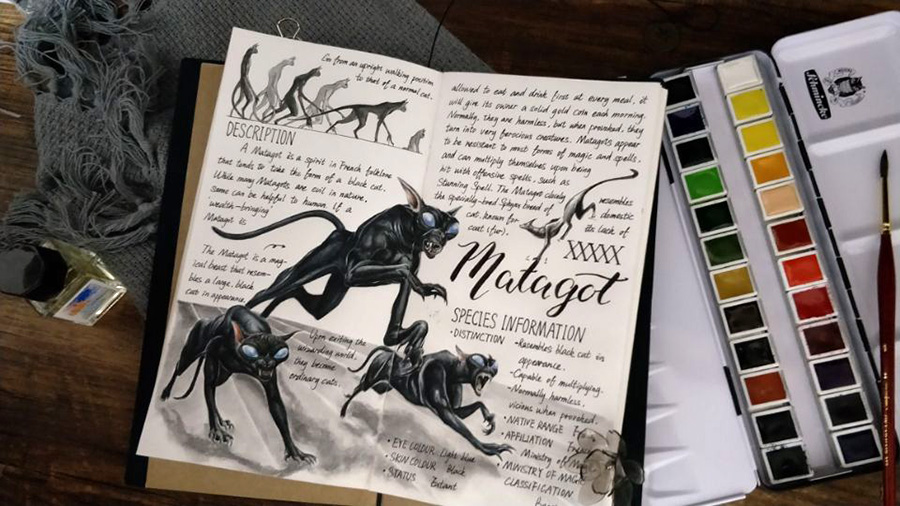 Go from an upright walking position
to that of a normal cat.
DESCRIPTION
A Matagot is a spirit in French folklore
that tends to take the form of a black cat.
While many Matagots are evil in nature,
some can be helpful to human. If a
wealth-bringing
Matagot is
The Matagot is a mag-
ical beast that resem-
bles a large, black
cat in appearance.
Upon exiting the
wizarding world,
they become
ordinary cats.
• EYE COLOUR Light blue
• SKIN COLOUR Black
• STATUS Extant
allowed to eat and drink first at every meal, it
will give its owner a solid gold coin each morning.
Normally, they are harmless, but when provoked, they
turn into very ferocious creatures. Matagots appear
to be resistant to most forms of magic and spells,
and can multiply themselves upon being
hit with offensive spells, such as
Stunning Spell. The Matagot closely resembles
the specially-bred Sphynx breed of domestic
cat, known for its lack of
coat (fur).
XXXXX
Matagot
SPECIES INFORMATION
• DISTINCTION • Resembles black cat in
appearance.
• Capable of multiplying.
• Normally harmless,
vicious when provoked.
• NATIVE RANGE
• AFFILIATION
Ministry of
• MINISTRY OF MAGIC
CLASSIFICATION
Rhmincke